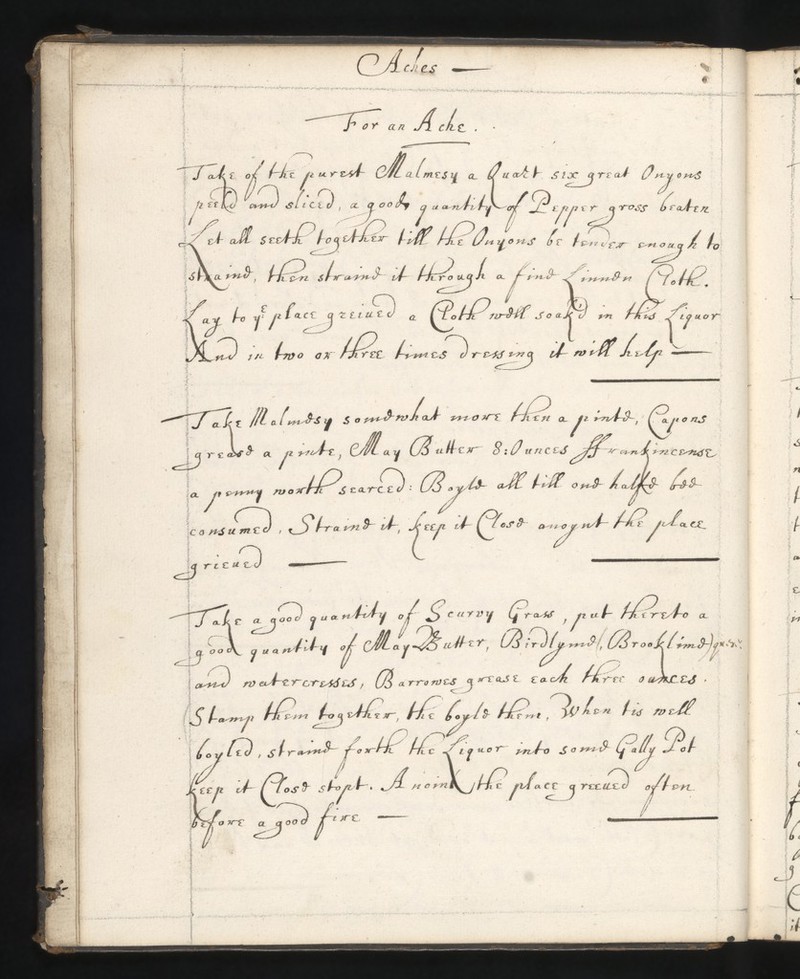 Aches —
For an Ache.
Take of the purest Malmesy a Quart six great Onyons
peeld and sliced, a good quantity of Pepper gross beaten
Let all seeth together till the Onyons be tender enough to
straind, then straine it through a fine Linnen Cloth.
Lay to ye place greiued a Cloth well soak'd in this Liquor
And in two or three times dressing it will help —
Take Malmesy somewhat more then a pinte, Capons
grease a pinte, May Butter 8: Ounces ffrankincense
a penny worth searced: Boyle all till one halfe bee
consumed, Straine it, keep it Close anoynt the place
grieued —
Take a good quantity of Scurvy Grass, put thereto a
good quantity of May Butter, Birdlyme (Brooklime)
and watercresses, Barrowes grease each three ounces.
Stamp them together, the boyle them, When tis well
boyled, straine forth the Liquor into some Gally Pot
keep it Close stopt. Anoint the place greeued often
before a good fire —